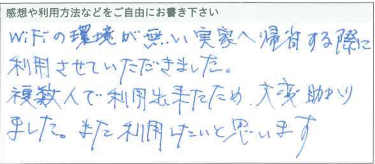 感想や利用方法などをご自由にお書き下さい
WiFiの環境が無い実家へ帰省する際に
利用させていただきました。
複数人で利用出来たため、大変助かり
ました。また利用したいと思います